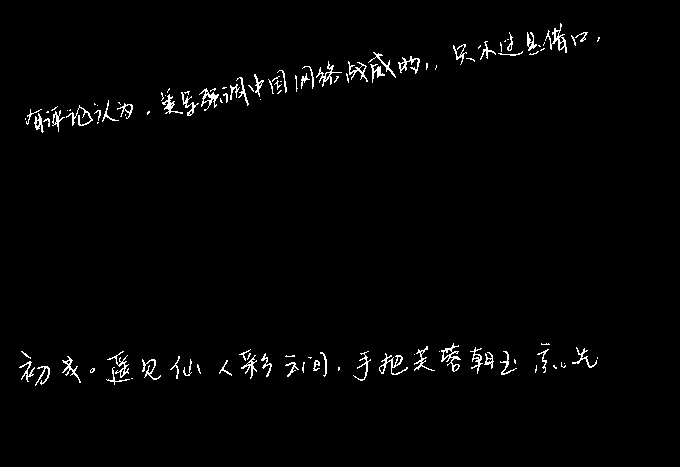 有评论认为,美军强调中国网络战威胁,,只不过是借口,
初成。遥见仙人彩云间,手把芙蓉朝玉京。先